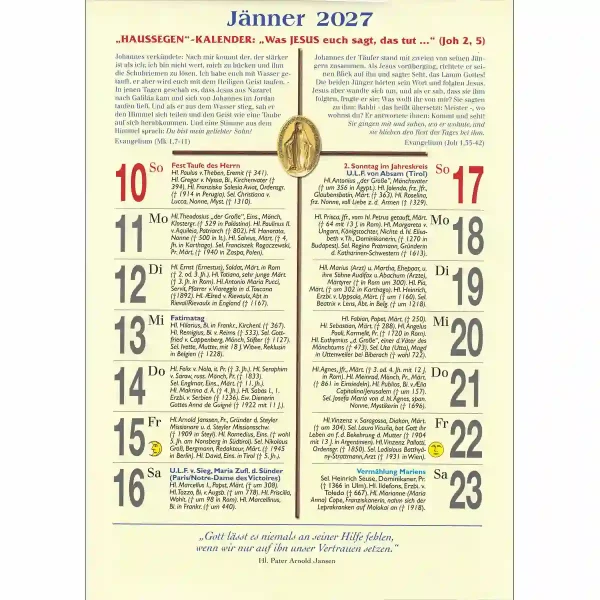 Jänner 2027
„HAUSSEGEN"-KALENDER: „Was JESUS euch sagt, das tut ..." (Joh 2, 5)
Johannes verkündete: Nach mir kommt der, der stärker
ist als ich; ich bin nicht wert, mich zu bücken und ihm
die Schuhriemen zu lösen. Ich habe euch mit Wasser ge-
tauft, er aber wird euch mit dem Heiligen Geist taufen. -
In jenen Tagen geschah es, dass Jesus aus Nazaret
nach Galiläa kam und sich von Johannes im Jordan
taufen ließ. Und als er aus dem Wasser stieg, sah er
den Himmel sich teilen und den Geist wie eine Taube
auf sich herabkommen. Und eine Stimme aus dem
Himmel sprach: Du bist mein geliebter Sohn!
Evangelium (Mk 1,7-11)
Johannes der Täufer stand mit zweien von seinen Jün-
gern zusammen. Als Jesus vorüberging, richtete er sei-
nen Blick auf ihn und sagte: Seht, das Lamm Gottes!
Die beiden Jünger hörten sein Wort und folgten Jesus.
Jesus aber wandte sich um, und als er sah, dass sie ihm
folgten, fragte er sie: Was wollt ihr von mir? Sie sagten
zu ihm: Rabbi - das heißt übersetzt: Meister -, wo
wohnst du? Er antwortete ihnen: Kommt und seht!
Sie gingen mit und sahen, wo er wohnte, und
sie blieben den Rest des Tages bei ihm.
Evangelium (Joh 1,35-42)
10 So
Fest Taufe des Herrn
Hl. Paulus v. Theben, Eremit († 341).
Hl. Gregor v. Nyssa, Bi., Kirchenvater (†
394). Hl. Franziska Salesia Aviat, Ordensgr.
(† 1914 in Perugia). Sel. Christiana v.
Lucca, Nonne, Myst. († 1310).
11 Mo
Hl. Theodosius „der Große", Eins., Mönch,
Klostergr. († 529 in Palästina). Hl. Paulinus II.
v. Aquileia, Patriarch († 802). Hl. Honorata,
Nonne († 500 in It.). Hl. Salvius, Märt. († 4.
Jh. in Karthago). Sel. Franziszek Rogaczewski,
Pr., Märt. († 1940 in Zaspa, Polen).
12 Di
Hl. Ernst (Ernestus), Soldat, Märt. in Rom
(† 2. od. 3. Jh.). Hl. Tatiana, sehr junge Märt.
(† 3. Jh. in Rom). Hl. Antonio Maria Pucci,
Servit, Pfarrer v. Viareggio in d. Toscana
(†1892). Hl. Ælred v. Rievaulx, Abt in
Rieval/Rievaulx in England († 1167).
13 Mi
Fatimatag
Hl. Hilarius, Bi. in Frankr., Kirchenl. († 367).
Hl. Remigius, Bi. v. Reims († 533). Sel. Gott-
fried v. Cappenberg, Mönch, Stifter († 1127).
Sel. Ivette, Mutter, mit 18 J Witwe, Reklusin
in Belgien († 1228).
14 Do
Hl. Felix v. Nola, it. Pr. († 3. Jh.). Hl. Seraphim
v. Sarow, russ. Mönch, Pr. († 1833).
Sel. Englmar, Eins., Märt. († 11. Jh.).
Hl. Makrina d. Ä. († 4. Jh.). Hl. Sabas I., 1.
Erzbi. v. Serbien († 1236). Ew. Dienerin
Gottes Anne de Guigné († 1922 mit 11 J.).
15 Fr
Hl. Arnold Janssen, Pr., Gründer d. Steyler
Missionare u. d. Steyler Missionsschw.
(† 1909 in Steyl). Hl. Romedius, Eins. († wohl
5. Jh. am Nonsberg in Südtirol). Sel. Nikolaus
Groß, Bergmann, Redaktor, Märt. († 1945
in Berlin). Hl. David, Eins. in Tirol († 5. Jh.).
16 Sa
U.L.F. v. Sieg, Maria Zufl. d. Sünder
(Paris/Notre-Dame des Victoires)
Hl. Marcellus I., Papst, Märt. († um 308).
Hl. Tozzo, Bi. v. Augsb. († um 778). Hl. Priscilla,
Wohlt. († um 98 in Rom). Hl. Marcellinus,
Bi. in Frankr. († um 440).
So 17
2. Sonntag im Jahreskreis
U.L.F. von Absam (Tirol)
Hl. Antonius „der Große", Mönchsvater
(† um 356 in Ägypt.). Hl. Jolenda, frz. Jfr.,
Glaubensbotin, Märt. († 363). Hl. Roselina,
frz. Nonne, voll Liebe z. d. Armen († 1329).
Mo 18
Hl. Prisca, Jfr., vom hl. Petrus getauft, Märt.
(† 64 mit 13 J. in Rom). Hl. Margareta v.
Ungarn, Königstochter, Nichte d. hl. Elisa-
beth v. Th., Dominikanerin, († 1270 in
Budapest). Sel. Regina Protmann, Gründerin
d. Katharinen-Schwestern († 1613).
Di 19
Hll. Marius (Arzt) u. Martha, Ehepaar, u.
ihre Söhne Audifax u. Abachum (Ärzte),
Märtyrer († in Rom um 300). Hl. Pia,
Märt. († um 302 in Karthago). Hl. Heinrich,
Erzbi. v. Uppsala, Märt. († um 1160). Sel.
Beatrix v. Lens, Äbt. in Belgien († um 1218).
Mi 20
Hl. Fabian, Papst, Märt. († 250).
Hl. Sebastian, Märt. († 288). Hl. Angelus
Paoli, Karmelit, Pr. († 1720 in Rom).
Hl. Euthymius „d. Große", einer d. Väter des
Mönchtums († 473). Sel. Uta (Uta), Magd
in Uttenweiler bei Biberach († wohl 722).
Do 21
Hl. Agnes, Jfr., Märt. († 3. od. 4. Jh. mit 12 J.
in Rom). Hl. Meinrad, Mönch, Pr., Märt.
(† 861 in Einsiedeln). Hl. Publius, Bi. v. Ælia
Capitolina/Jerusalem († um 157).
Sel. Josefa Maria von d. hl. Agnes, span.
Nonne, Mystikerin († 1696).
Fr 22
Hl. Vinzenz v. Saragossa, Diakon, Märt.
(† um 304). Sel. Laura Vicuña, bot Gott ihr
Leben an f. d. Bekehrung d. Mutter († 1904
mit 13 J. in Argentinien). Hl. Vinzenz Pallotti,
Ordensgr. († 1850). Sel. Ladislaus Batthy-
ány-Strattmann, Arzt († 1931 in Wien).
Sa 23
Vermählung Mariens
Sel. Heinrich Seuse, Dominikaner, Pr.
(† 1366 in Ulm). Hl. Ildefons, Erzbi. v.
Toledo († 667). Hl. Marianne (Maria
Anna) Cope, Franziskanerin, nahm sich der
Leprakranken auf Molokai an († 1918).
„Gott lässt es niemals an seiner Hilfe fehlen,
wenn wir nur auf ihn unser Vertrauen setzen."
Hl. Pater Arnold Jansen